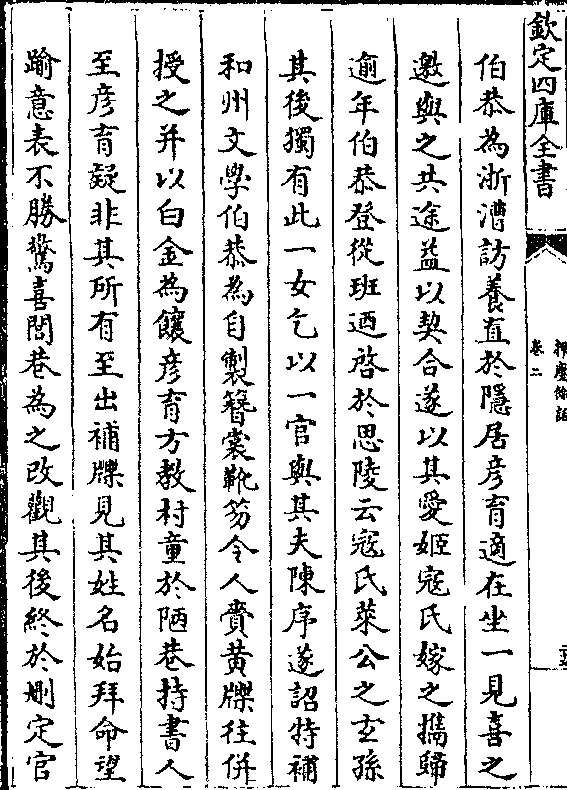 欽定四庫全書
揮麈餘話
卷二
伯恭為浙漕訪養直於隱居彥育適在坐一見喜之
邀與之共途益以契合遂以其愛姬寇氏嫁之攜歸
逾年伯恭登從班迺啓於思陵云寇氏萊公之玄孫
其後獨有此一女乞以一官與其夫陳序遂詔特補
和州文學伯恭為自製簪裳靴笏令人賫黃牒往併
授之并以白金為饟彥育方教村童於陋巷持書人
至彥育疑非其所有至出補牒見其姓名始拜命望
踰意表不勝驚喜閭巷為之改觀其後終於刪定官